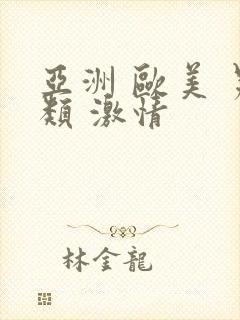 亞洲 歐美
類 激情
林金龍